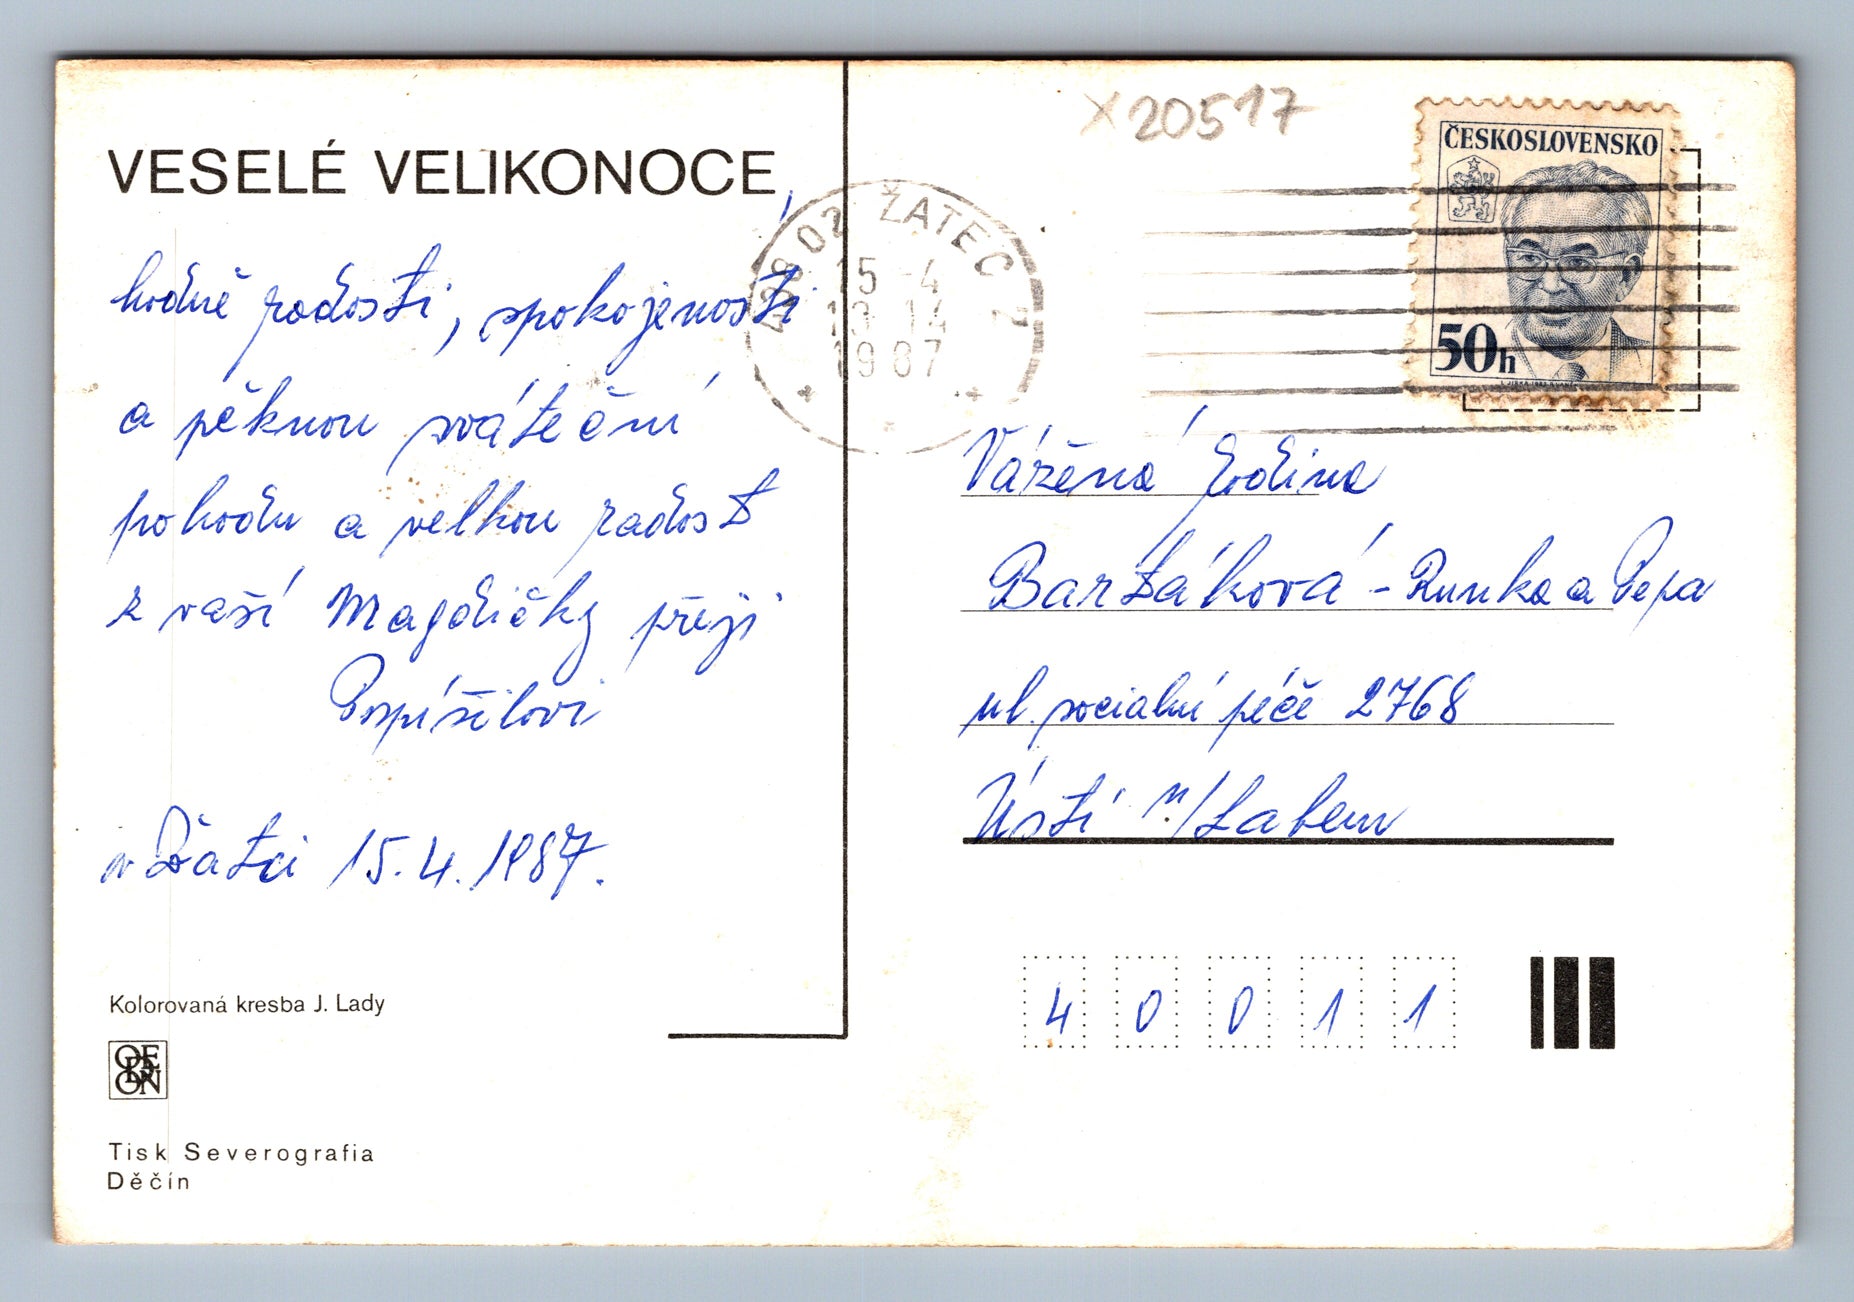 VESELÉ VELIKONOCE,
hodně radosti, spokojenosti
a pěknou sváteční
pohodu a velkou radost
z vaší Magdičky přejí
Pospíšilovi
v Žatci 15.4.1987.
Kolorovaná kresba J. Lady
ODEON
Tisk Severografia
Děčín
X20517
438 02 ŽATEC 2
15 -4
13-14
1987
ČESKOSLOVENSKO
50h
Vážená rodina
Bartáková - Runka a Pepa
ul. sociální péče 2768
Ústí n/Labem
40011